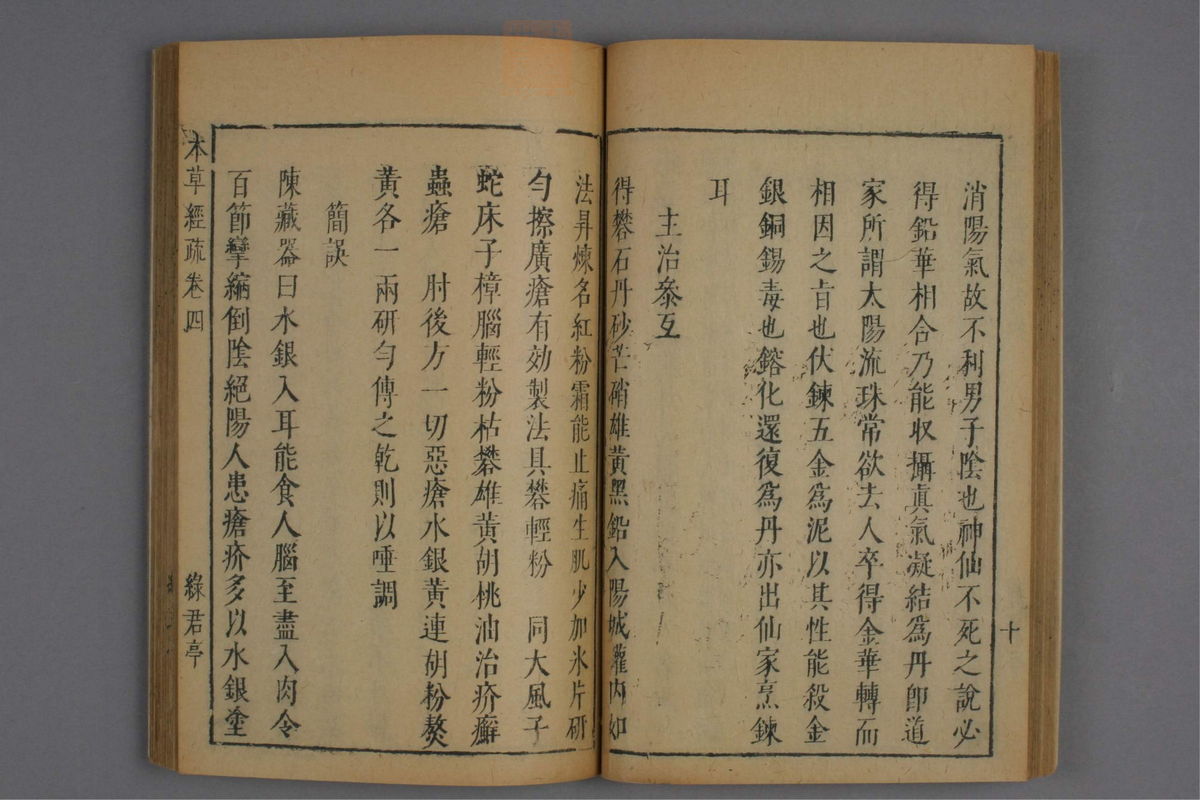 十
消陽氣故不利男子陰也神仙不死之說必
得鉛華相合乃能収攝眞氣凝結爲丹卽道
家所謂太陽流珠常欲去人卒得金華轉而
相因之㫖也伏鍊五金爲泥以其性能殺金
銀銅錫毒也鎔化還復爲丹亦出仙家烹鍊
耳
主治叅互
得礬石丹砂芒硝雄黃黑鉛入陽城罐內如
法昇煉名紅粉霜能止痛生肌少加氷片研
勻擦廣瘡有効製法具礬輕粉　同大風子
蛇床子樟腦輕粉枯礬雄黃胡桃油治疥癬
蟲瘡　肘後方一切惡瘡水銀黃連胡粉熬
黃各一兩研勻傅之乾則以唾調
簡誤
陳藏器曰水銀入耳能食人腦至盡入肉令
百節攣縮倒陰絕陽人患瘡疥多以水銀塗
本草經疏卷四
綠君亭